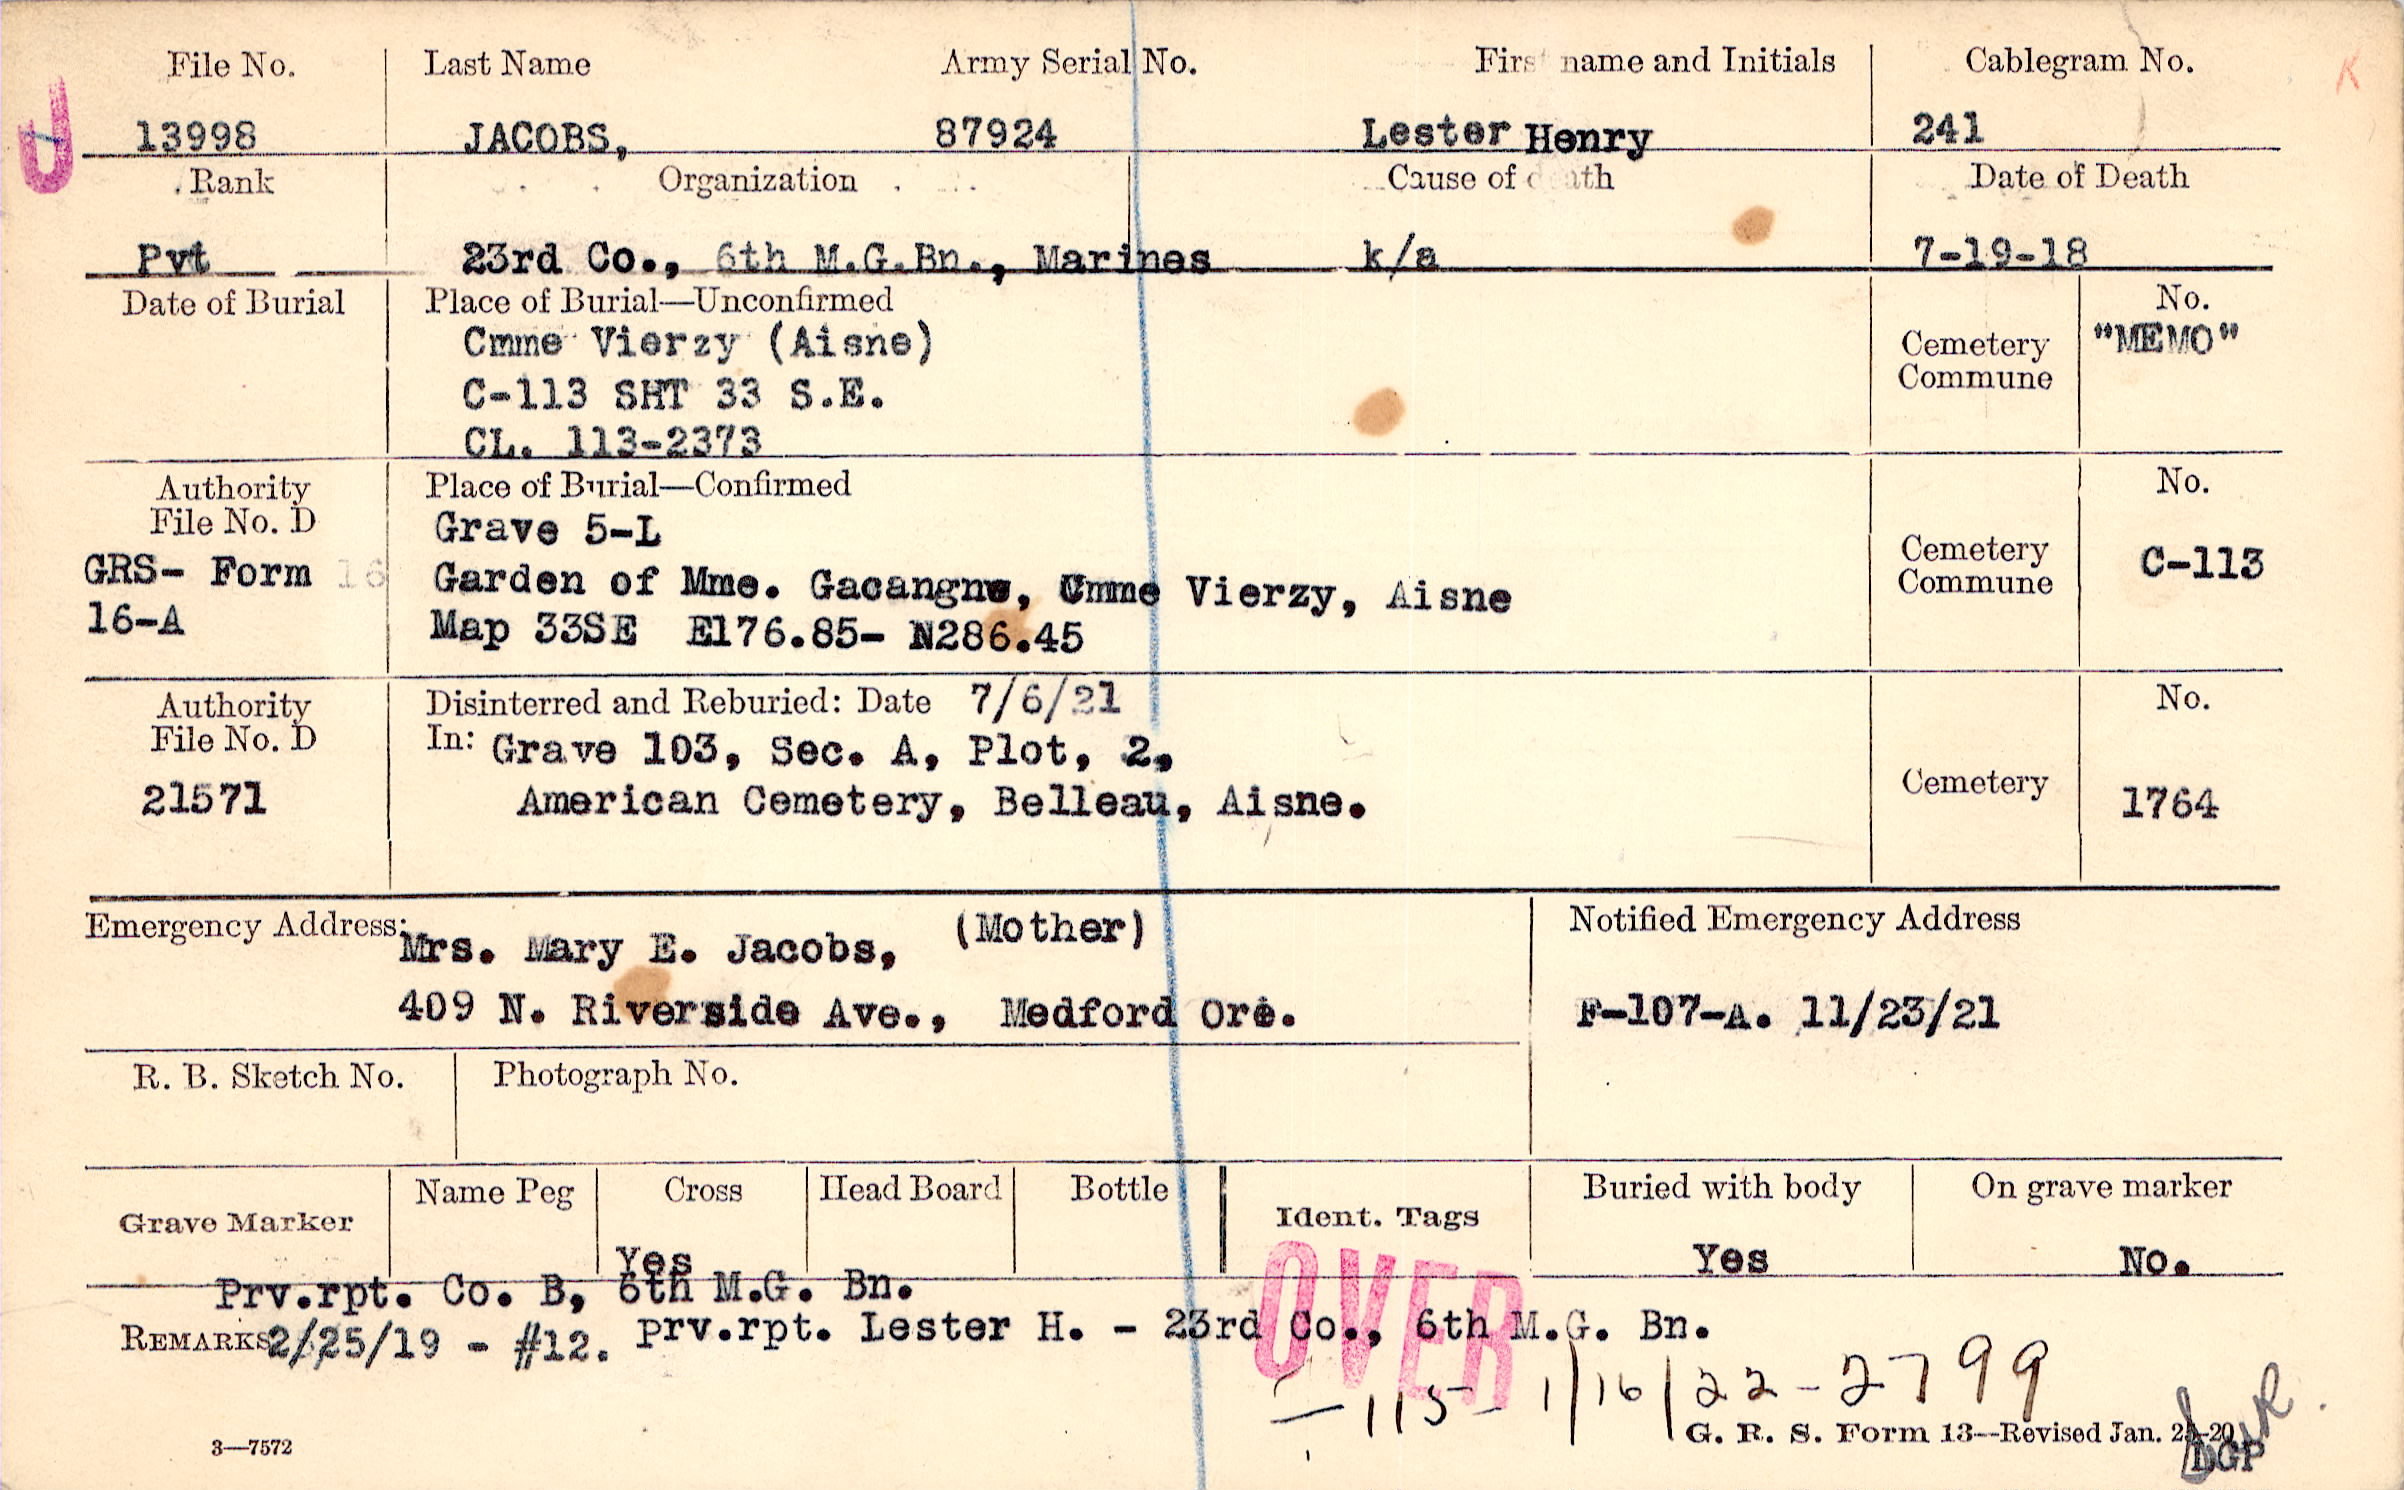 File No.
Last Name
Army Serial No.
First name and Initials
Cablegram No.
K
J
13998
JACOBS,
87924
Lester Henry
241
Rank
Organization
Cause of death
Date of Death
Pvt
23rd Co., 6th M.G.Bn., Marines
k/a
7-19-18
Date of Burial
Place of Burial—Unconfirmed
Cmme Vierzy (Aisne)
C-113 SHT 33 S.E.
CL. 113-2373
Cemetery
Commune
No.
"MEMO"
Authority
File No. D
GRS- Form 16
16-A
Place of Burial—Confirmed
Grave 5-L
Garden of Mme. Gacangne, Cmme Vierzy, Aisne
Map 33SE E176.85- N286.45
Cemetery
Commune
No.
C-113
Authority
File No. D
21571
Disinterred and Reburied: Date 7/6/21
In: Grave 103, Sec. A, Plot, 2,
American Cemetery, Belleau, Aisne.
Cemetery
No.
1764
Emergency Address:
Mrs. Mary E. Jacobs, (Mother)
409 N. Riverside Ave., Medford Ore.
Notified Emergency Address
F-107-A. 11/23/21
R. B. Sketch No.
Photograph No.
Grave Marker
Name Peg
Cross
Yes
Head Board
Bottle
Ident. Tags
Buried with body
Yes
On grave marker
No.
OVER
Prv.rpt. Co. B, 6th M.G. Bn.
REMARKS 2/25/19 - #12. prv.rpt. Lester H. - 23rd Co., 6th M.G. Bn.
-115- 1/16/22-2799
3—7572
G. R. S. Form 13—Revised Jan. 24-20
DGP